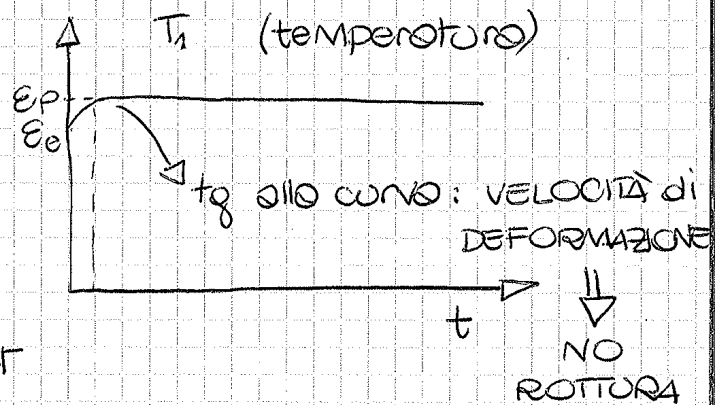 T₁ (temperatura)
εp
εe
tg alla curva: VELOCITÀ di
DEFORMAZIONE
t
NO
ROTTURA
r